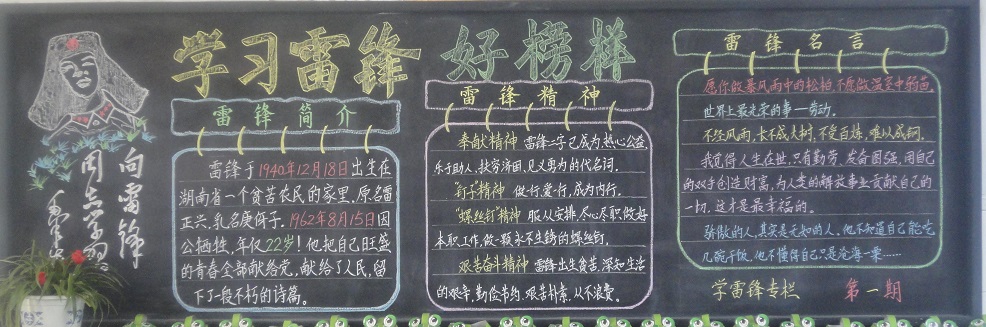 学习雷锋 好榜样
向雷锋
同志学习
毛泽东
雷锋简介
雷锋于1940年12月18日出生在
湖南省一个贫苦农民的家里,原名雷
正兴,乳名庚伢子。1962年8月15日因
公牺牲,年仅22岁!他把自己旺盛
的青春全部献给党,献给了人民,留
下了一段不朽的诗篇。
雷锋精神
奉献精神 雷锋一字已成为热心公益、
乐于助人、扶穷济困、见义勇为的代名词。
钉子精神 做一行、爱一行,成为内行。
螺丝钉精神 服从安排、尽心尽职做好
本职工作,做一颗永不生锈的螺丝钉。
艰苦奋斗精神 雷锋出生贫苦,深知生活
的艰辛,勤俭节约、艰苦朴素,从不浪费。
雷锋名言
愿你做暴风雨中的松柏,不愿做温室中弱苗
世界上最光荣的事—劳动。
不经风雨,长不成大树,不受百炼,难以成钢。
我觉得人生在世,只有勤劳、发奋图强,用自己
的双手创造财富,为人类的解放事业贡献自己的
一切,这才是最幸福的。
骄傲的人,其实是无知的人,他不知道自己能吃
几碗干饭,他不懂得自己只是沧海一粟……
学雷锋专栏 第一期